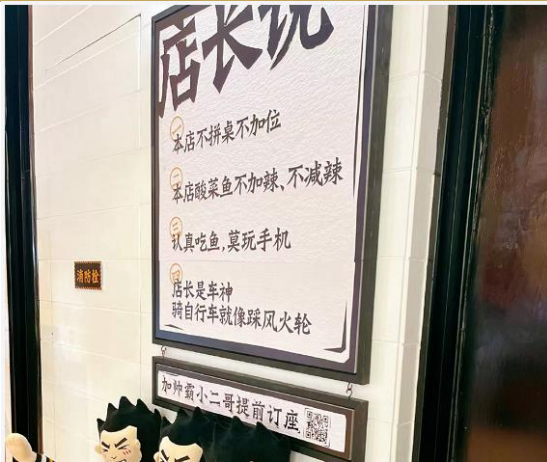 店长说
一
本店不拼桌不加位
二
本店酸菜鱼不加辣、不减辣
三
认真吃鱼,莫玩手机
四
店长是车神
骑自行车就像踩风火轮
消防栓
加帅霸小二哥提前订座